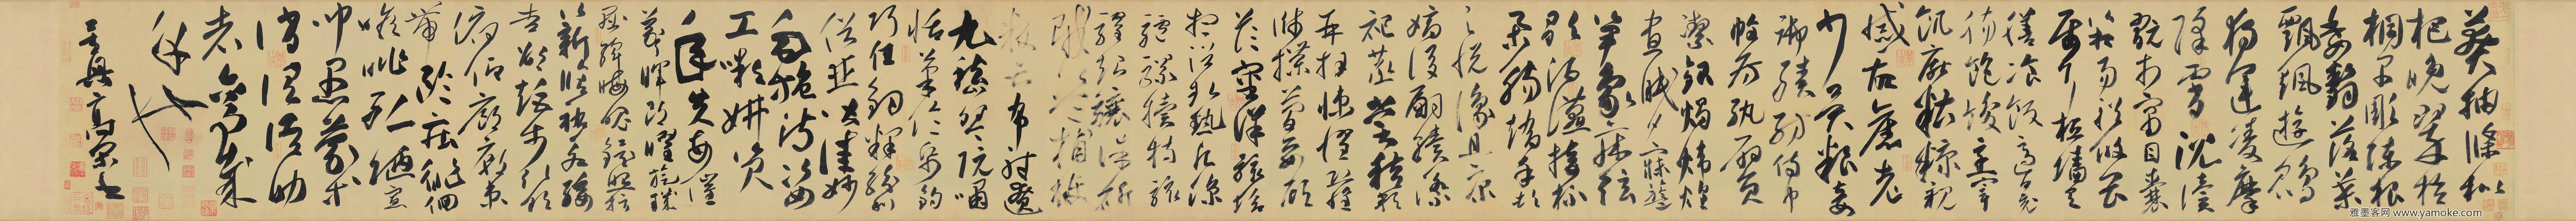 莽抽條枇
杷晚翠梧
桐早彫陳根
委翳落葉
飄颻遊鵾
獨運凌摩
絳霄耽讀
翫市寓目囊
箱易輶攸畏
屬耳垣墻具
膳飡飯適口充
腸飽飫烹宰
飢厭糟糠親
戚故舊老
少異粮妾
御績紡侍巾
帷房紈扇員
潔銀燭煒煌
晝眠夕寐籃
笋象床絃
歌酒讌接杯
舉觴矯手頓
足悅豫且康
嫡後嗣續祭
祀蒸嘗稽顙
再拜悚懼恐惶
牋牒簡要顧
答審詳骸垢
想浴執熱願凉
驢騾犢特駭
躍超驤誅斬
賊盜捕獲
叛亡布射遼
丸嵇琴阮嘯
恬筆倫紙鈞
巧任釣釋紛利
俗並皆佳妙
毛施淑姿
工顰妍笑
年矢每催
羲暉朗曜旋璣
懸斡晦魄環照指
薪脩祜永綏
吉劭矩步引領
俯仰廊廟束
帶矜莊徘徊
瞻眺孤陋寡
聞愚蒙等
誚謂語助
者焉哉乎
也
吴興高閑書
雅墨客网 www.yamoke.com